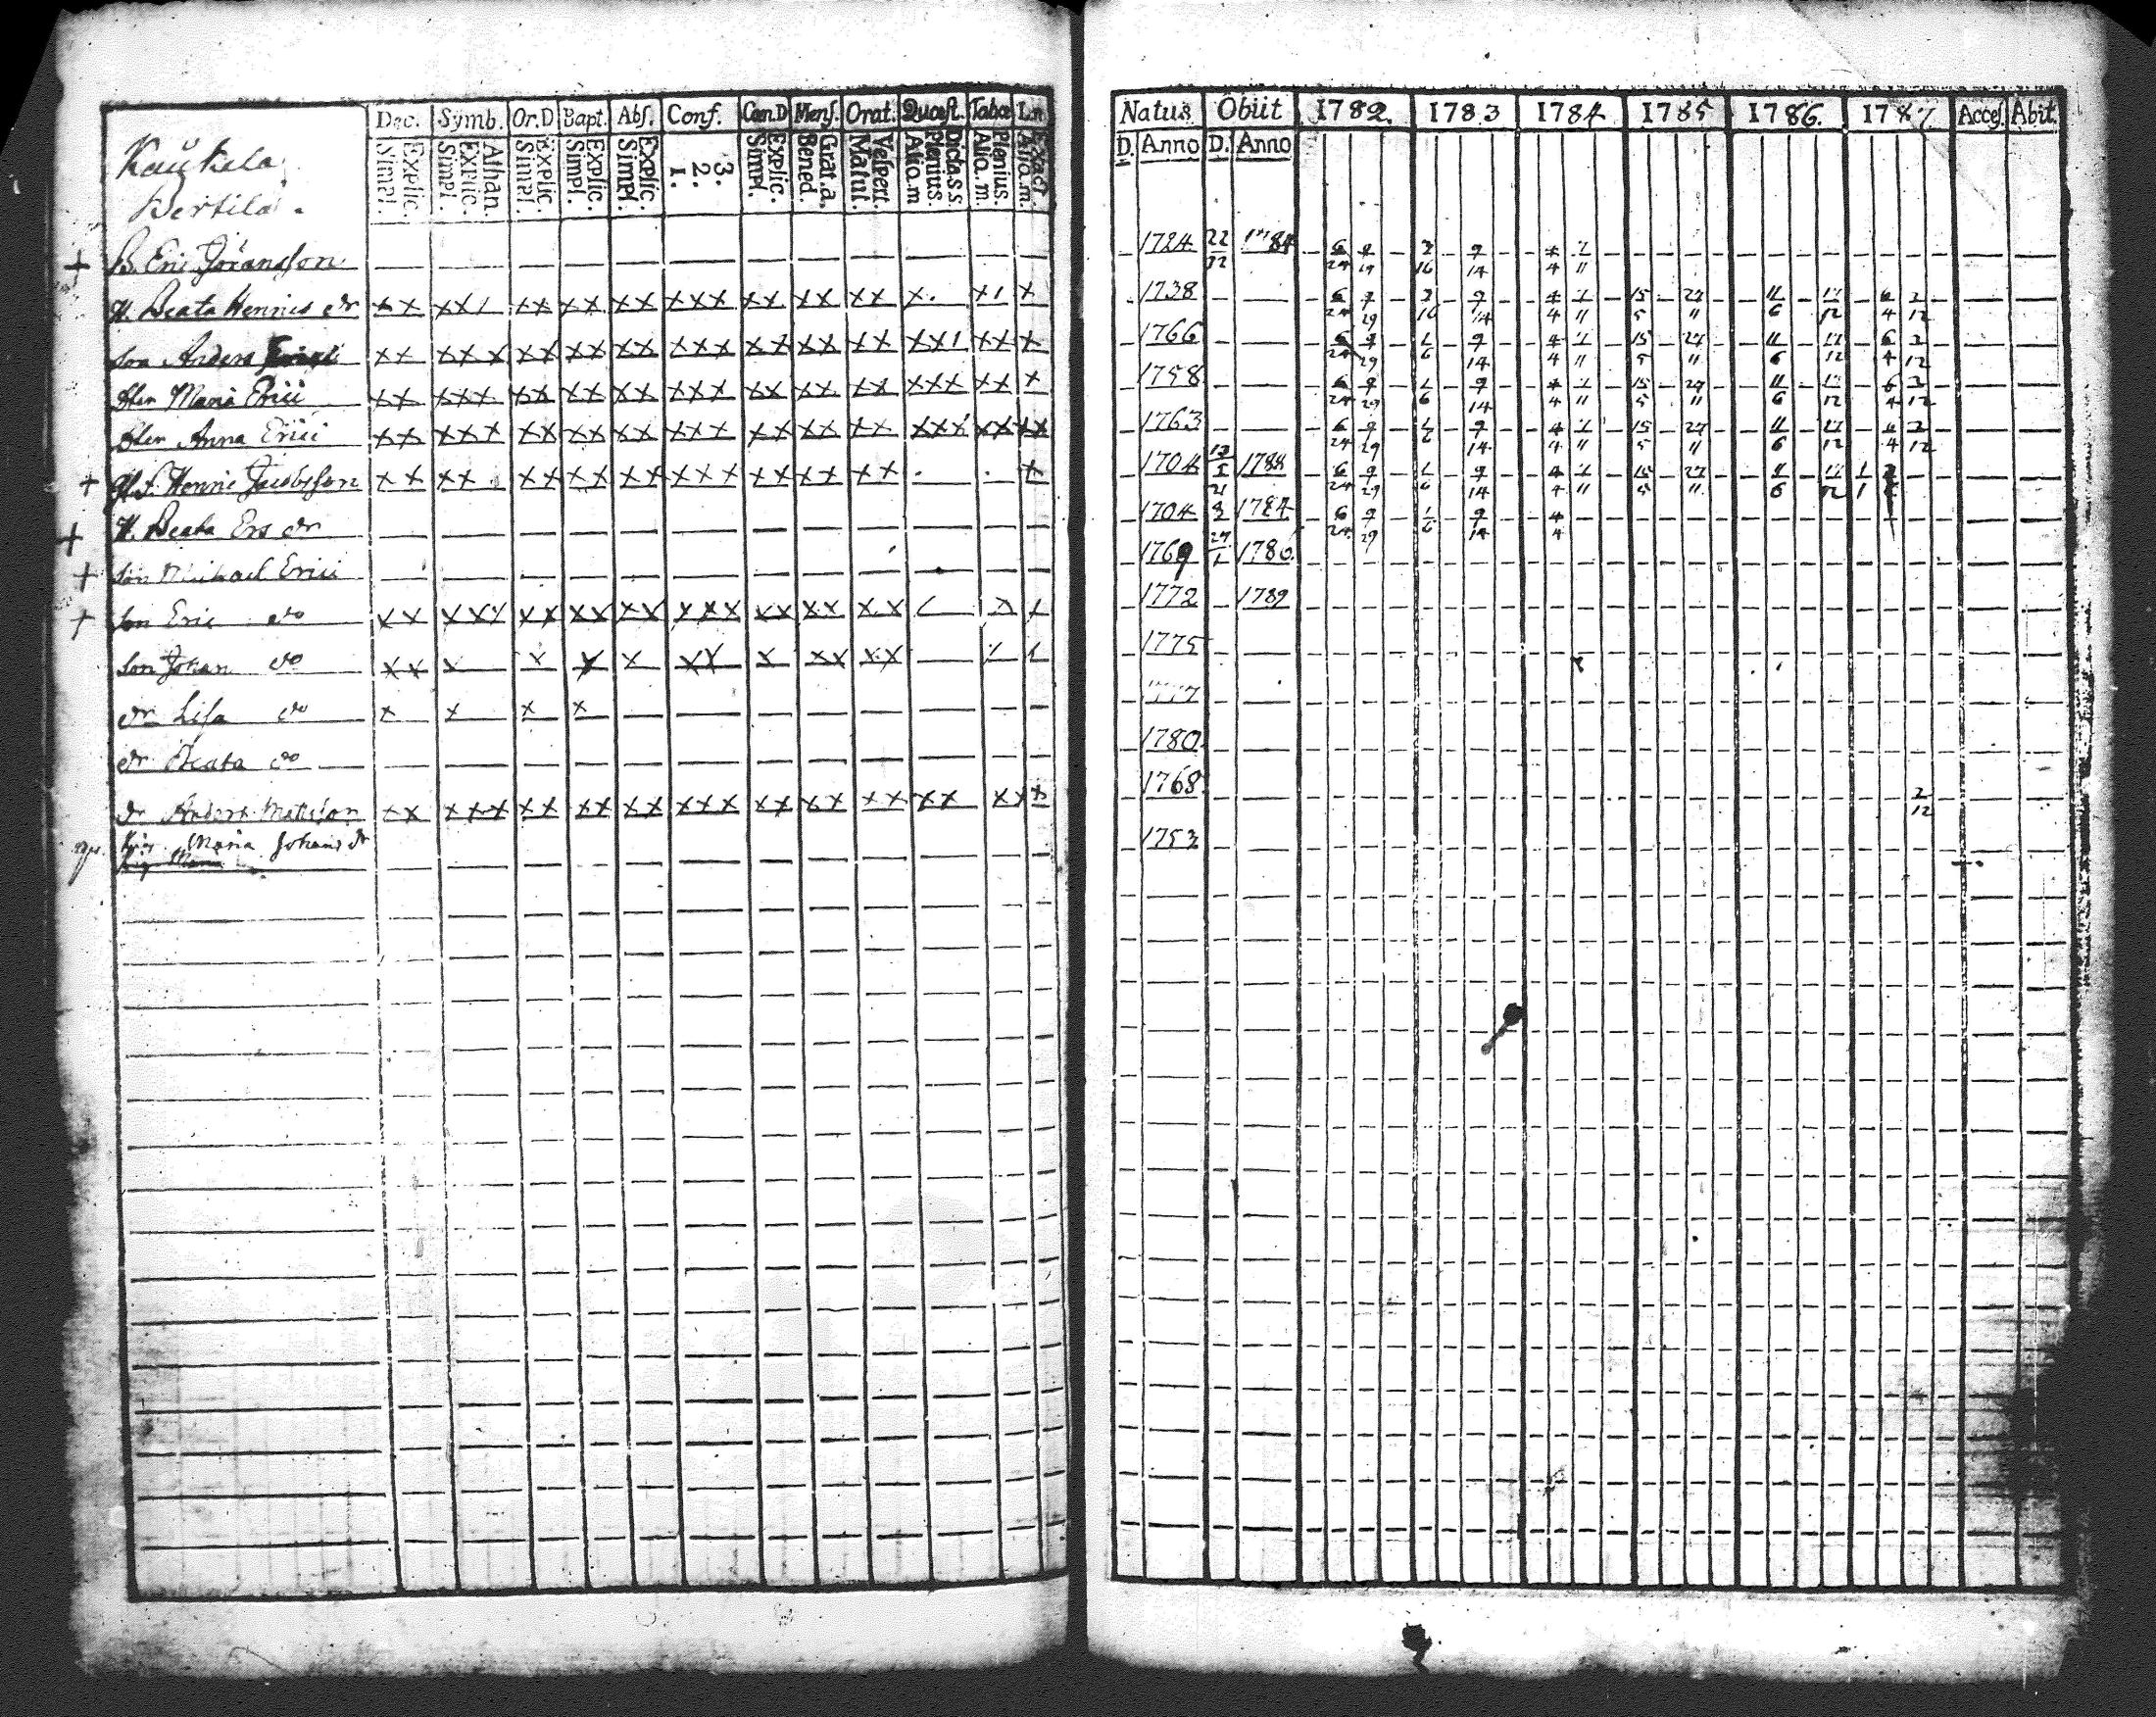 Dec. Symb. Or.D Bapt. Abs. Conf. Cœn.D Mens. Orat. Quæst. Tabæ
Explic. Simpl. Athan. Explic. Simpl. Explic. Simpl. Explic. Simpl. Explic. Simpl. 3. 2. 1. Explic. Simpl. Grat.a. Bened. Vespert. Matut. Dicta.S.S Plenius. Alio.m Plenius. Alio.m. Exact. Alio.m.
Kaukela
Bertila.
+ B. Eric Jöransson
H. Beata Henrics dr x x x x x x x x x x x x x x x x x x x x x x
Son Anders x x x x x x x x x x x x x x x x x x x x x x x x
Dtr Maria Erici x x x x x x x x x x x x x x x x x x x x x x x x x
Dtr Anna Erici x x x x x x x x x x x x x x x x x x x x x x x x x x
+ Henric Jacobsson x x x x x x x x x x x x x x x x x x x x
+ H. Beata Ers dr
+ Son Michael Erici
+ Son Eric do x x x x x x x x x x x x x x x x x x x x
Son Johan do x x x x x x x x x x x x x
dr Lisa do x x x x
dr Beata do
dr Anders Mattsson x x x x x x x x x x x x x x x x x x x x x x x x x
Maria Johans dr
Natus Obiit 1782. 1783 1784 1785 1786. 1787 Acces. Abit.
D. Anno D. Anno
1724 22 12 1784 6 24 9 29 9 14
1738 6 24 9 29 9 14 4 11 15 5 27 11 11 6 12 6 4 2 12
1766 6 24 9 29 1 6 9 14 4 11 15 5 27 11 11 6 12 6 4 2 12
1758 6 24 9 29 1 6 9 14 4 11 15 5 27 11 11 6 12 6 4 2 12
1763 6 24 9 29 1 6 9 14 4 11 15 5 27 11 11 6 12 6 4 2 12
1704 1788 6 24 9 29 1 6 9 14 4 11 15 5 27 11 11 6 12 1 1
1704 21 3 1784 6 24 9 29 1 6 9 14 4
1769 27 1 1786
1772 1789
1775
1780
1768 2 12
1753